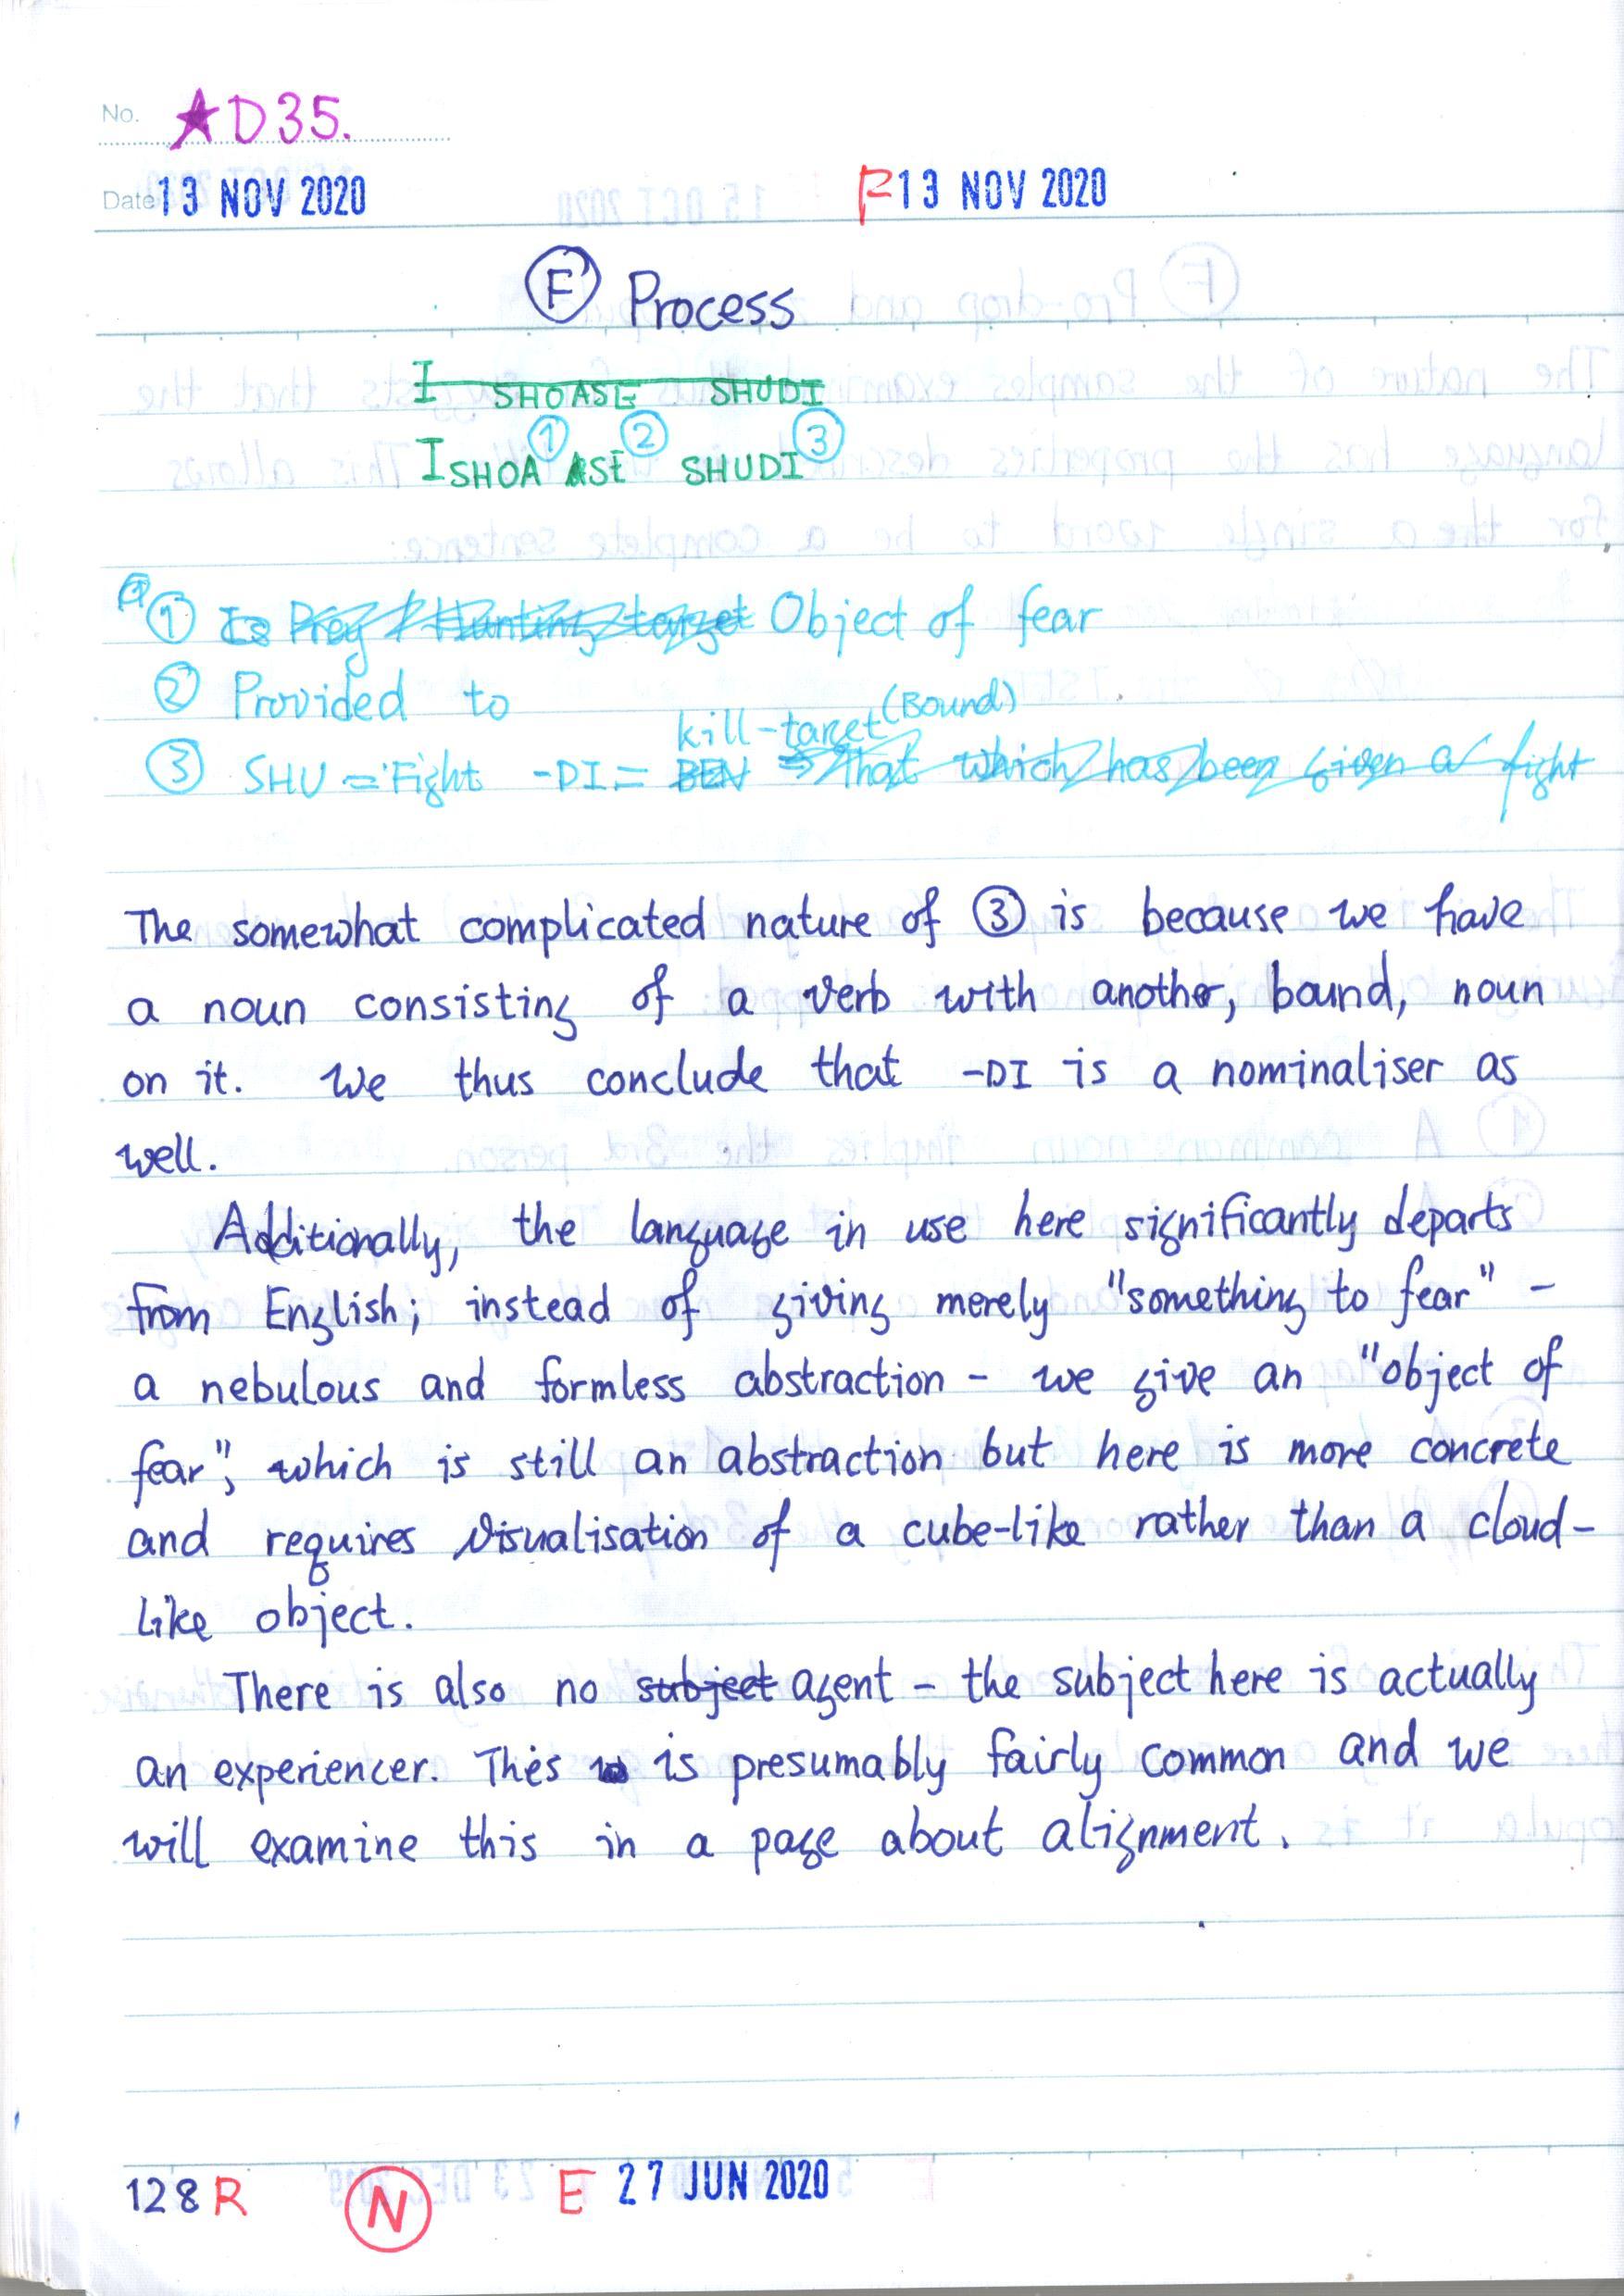 No. ★D35.
Date 13 NOV 2020 F 13 NOV 2020
F Process
I SHOASE SHUDI
① ② ③
ISHOA ASE SHUDI
① Is Prey / Hunting target Object of fear
② Provided to
kill-target (Bound)
③ SHU = Fight -DI = BEN → That which has been given a fight
The somewhat complicated nature of ③ is because we have
a noun consisting of a verb with another, bound, noun
on it. We thus conclude that -DI is a nominaliser as
well.
Additionally, the language in use here significantly departs
from English; instead of giving merely "something to fear" -
a nebulous and formless abstraction - we give an "object of
fear", which is still an abstraction but here is more concrete
and requires visualisation of a cube-like rather than a cloud-
like object.
There is also no subject agent - the subject here is actually
an experiencer. This is presumably fairly common and we
will examine this in a page about alignment.
128 R N E 27 JUN 2020